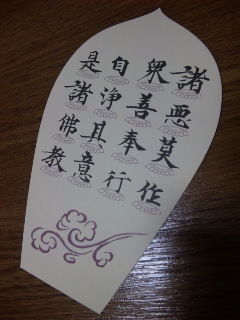 諸悪莫作
衆善奉行
自浄其意
是諸佛教